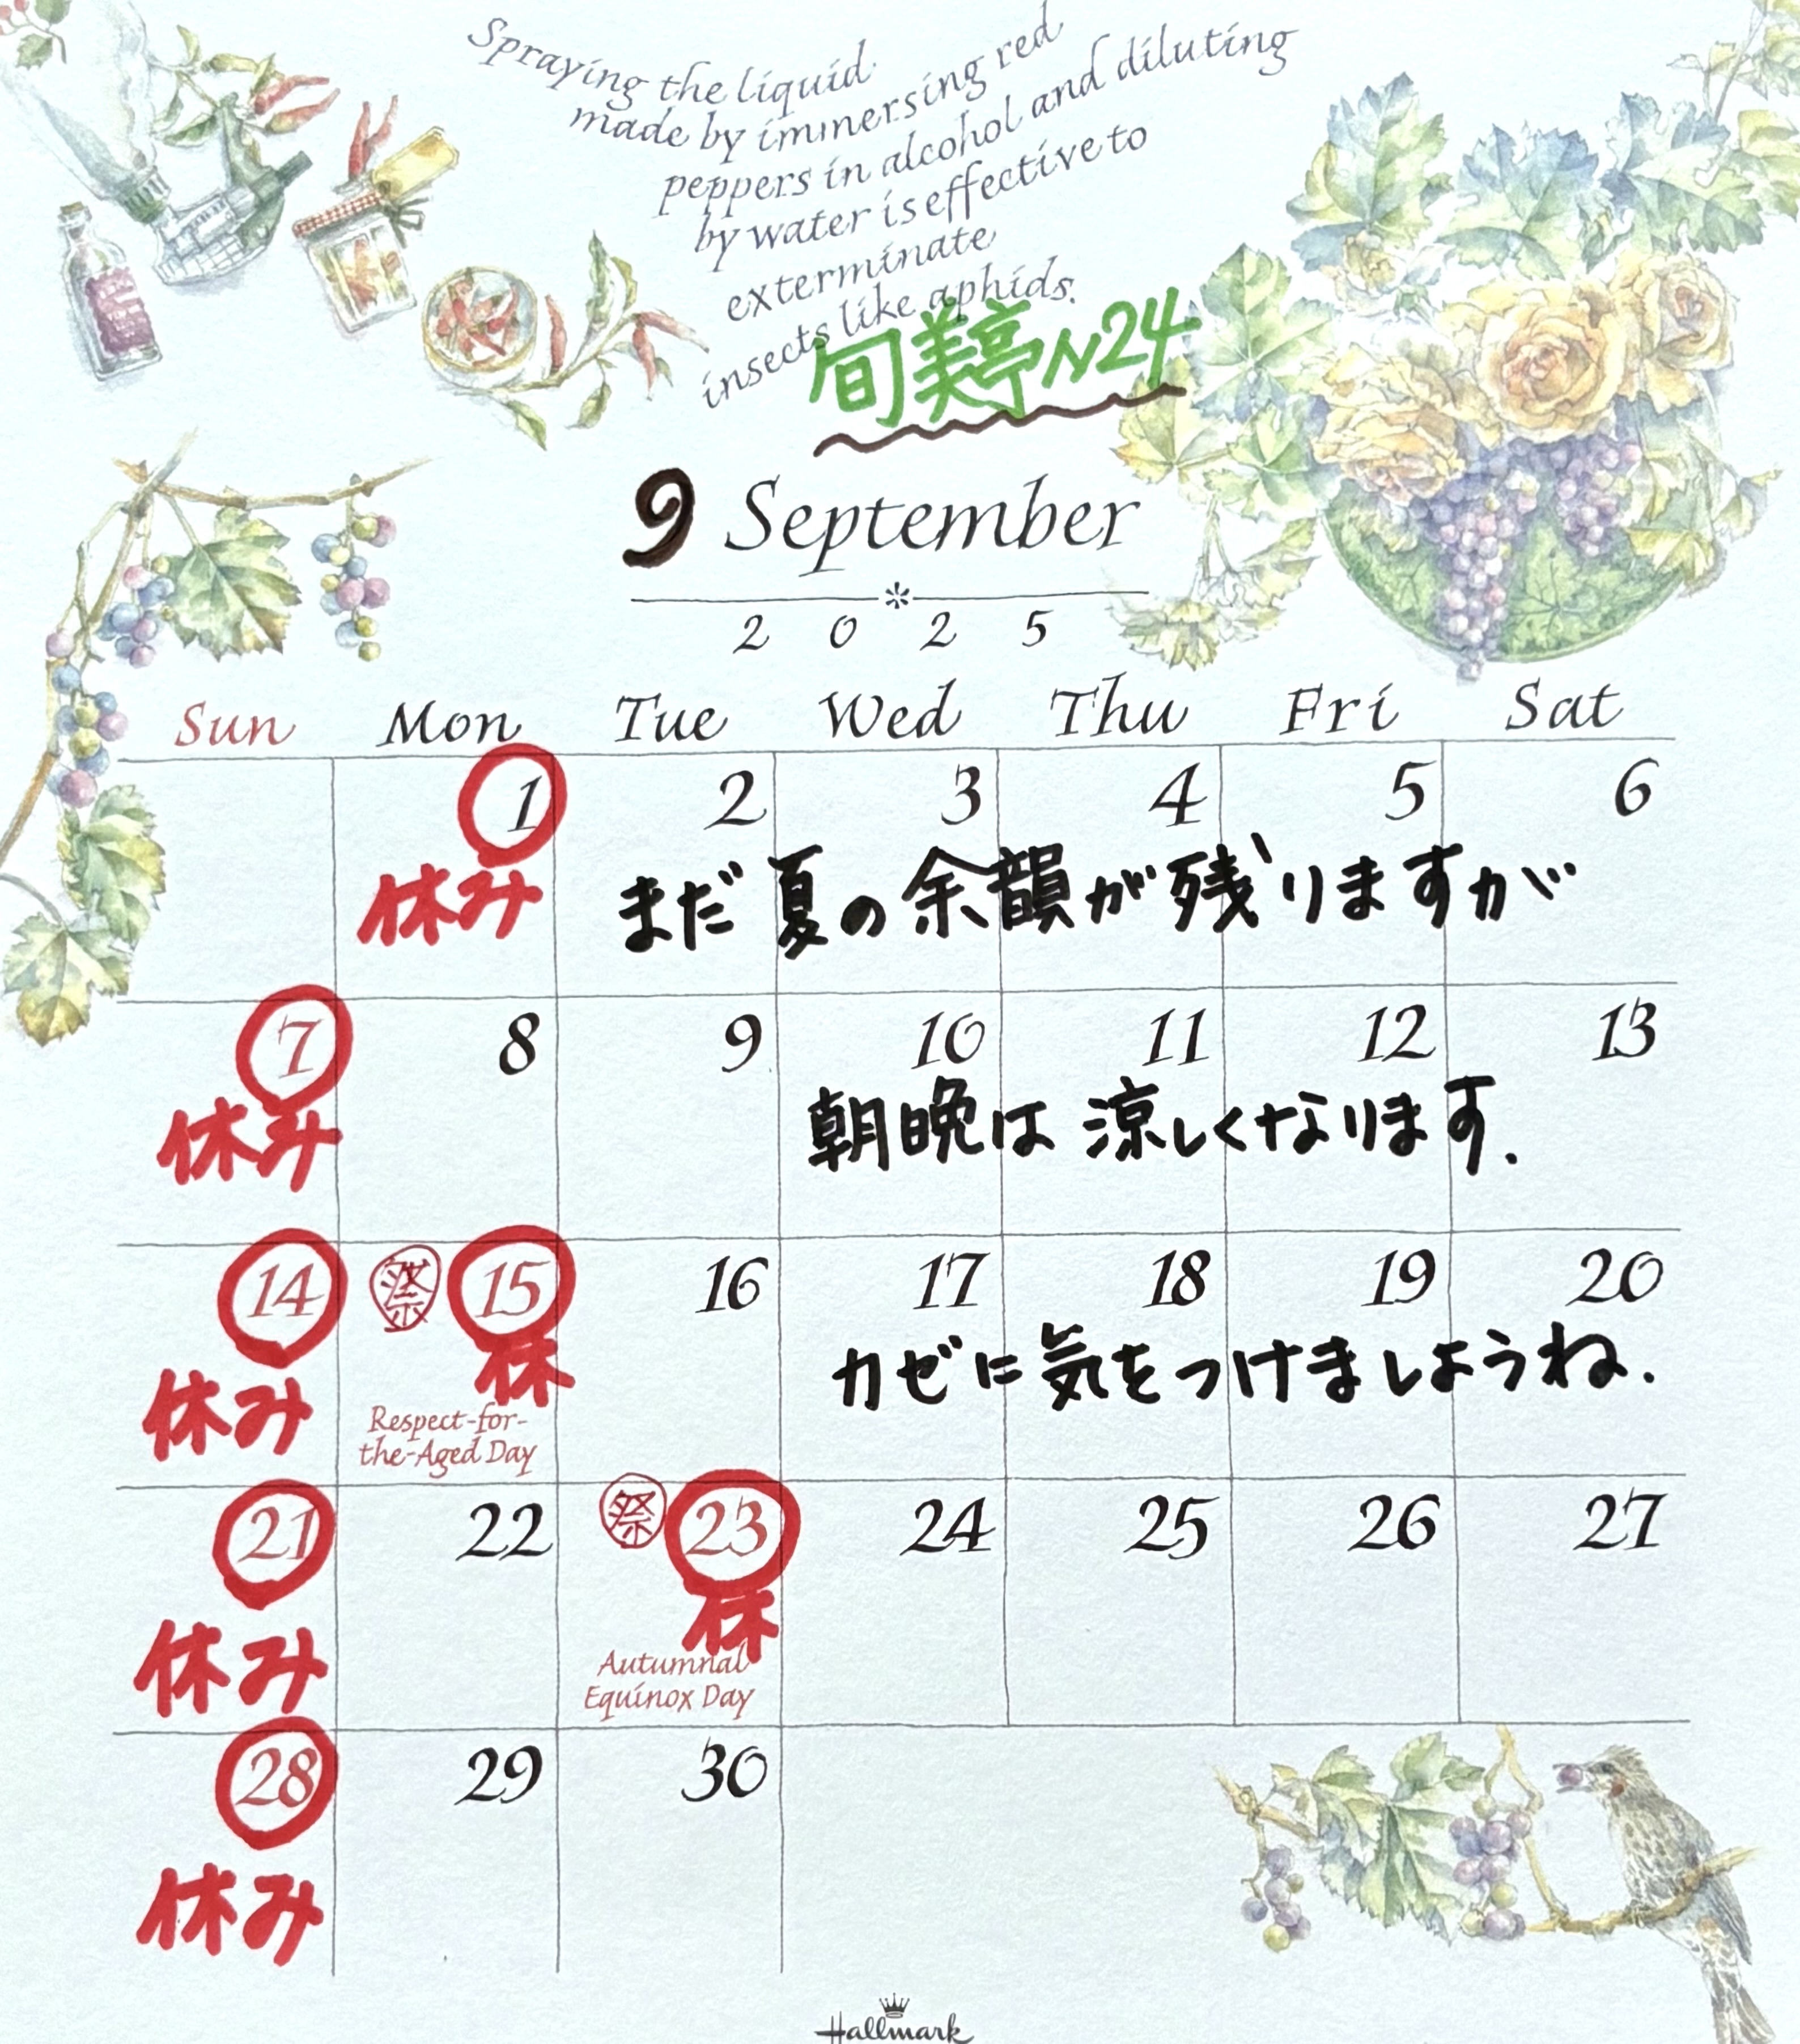 Spraying the liquid
made by immersing red
peppers in alcohol and diluting
by water is effective to
exterminate
insects like aphids.
旬美亭N24
9 September
2025
Sun Mon Tue Wed Thu Fri Sat
1 2 3 4 5 6
休み まだ夏の余韻が残りますが
7 8 9 10 11 12 13
休み 朝晩は涼しくなります.
14 祭 15 16 17 18 19 20
休み 休 カゼに気をつけましょうね.
Respect-for-
the-Aged Day
21 22 祭 23 24 25 26 27
休み 休
Autumnal
Equinox Day
28 29 30
休み
Hallmark